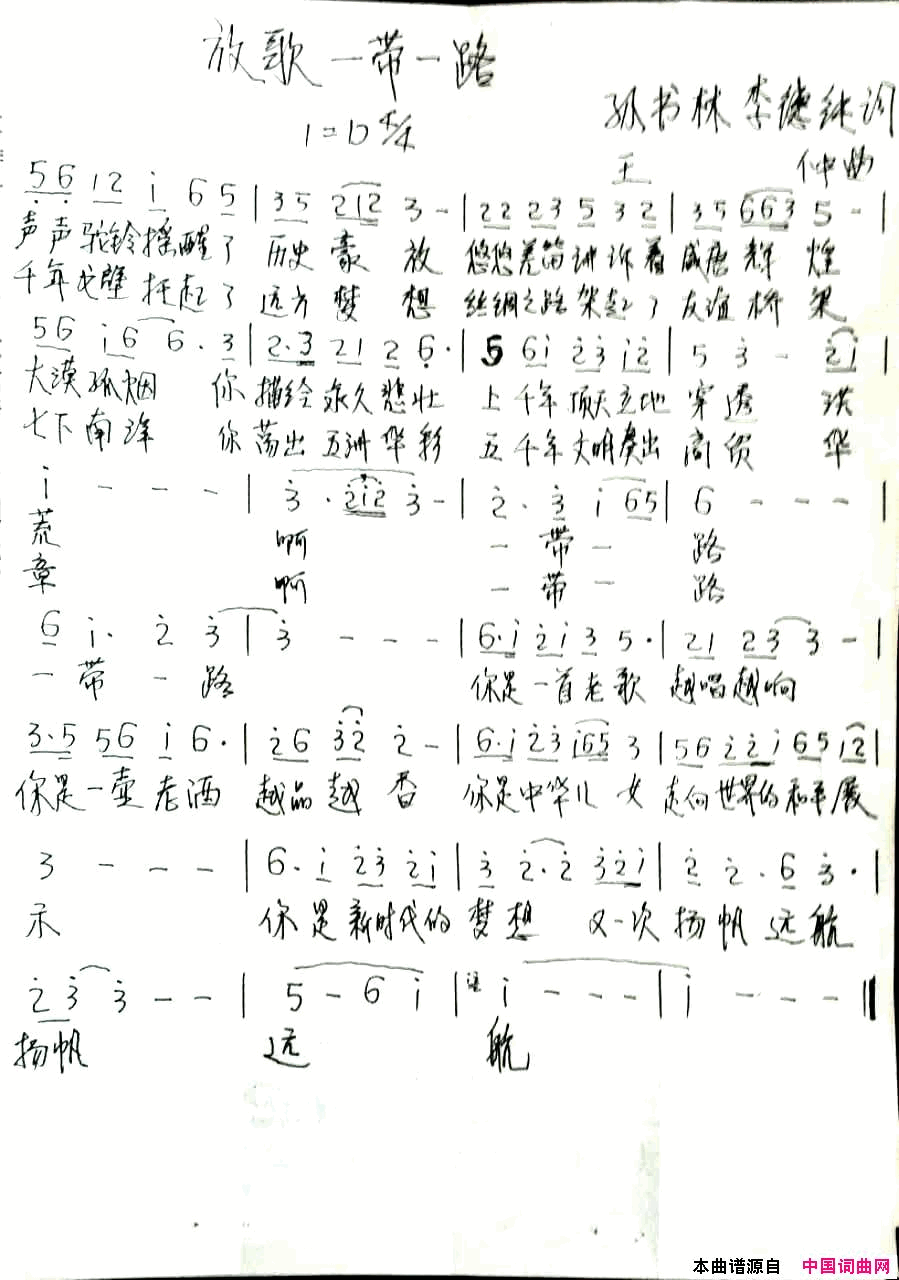 放歌一带一路
孙书林 李德纯词
1=D 4/4
王 仲曲
56 12 i 6 5 | 35 212 3 - | 22 23 5 32 | 35 663 5 - |
声声驼铃摇醒了 历史豪放 悠悠羌笛讲诉着盛唐辉煌
千年戈壁托起了 远方梦想 丝绸之路架起了友谊桥梁
56 i6 6. 3 | 2.3 21 2 6. | 5 6i 23 i2 | 5 3 - 2i |
大漠孤烟 你描绘永久悲壮 上千年顶天立地 穿透 洪
七下南洋 你荡出五洲华彩 五千年文明奏出 商贸 华
i - - - | 3 . 2i2 3 - | 2 . 3 i 65 | 6 - - - |
荒 啊 一带一 路
章 啊 一带一 路
6 i. 2 3 | 3 - - - | 6.i 2i 3 5. | 21 23 3 - |
一带一路 你是一首老歌 越唱越响
3.5 56 i 6. | 26 32 2 - | 6.i 23 i65 3 | 56 22i 65 i2 |
你是一壶老酒 越品越香 你是中华儿女 走向世界的和平展
3 - - - | 6.i 23 2i | 3 2.2 32i | 2 2. 6 3. |
示 你是新时代的梦想 又一次扬帆远航
23 3 - - | 5 - 6 i | i - - - | i - - - ||
扬帆 远 航
本曲谱源自 中国词曲网